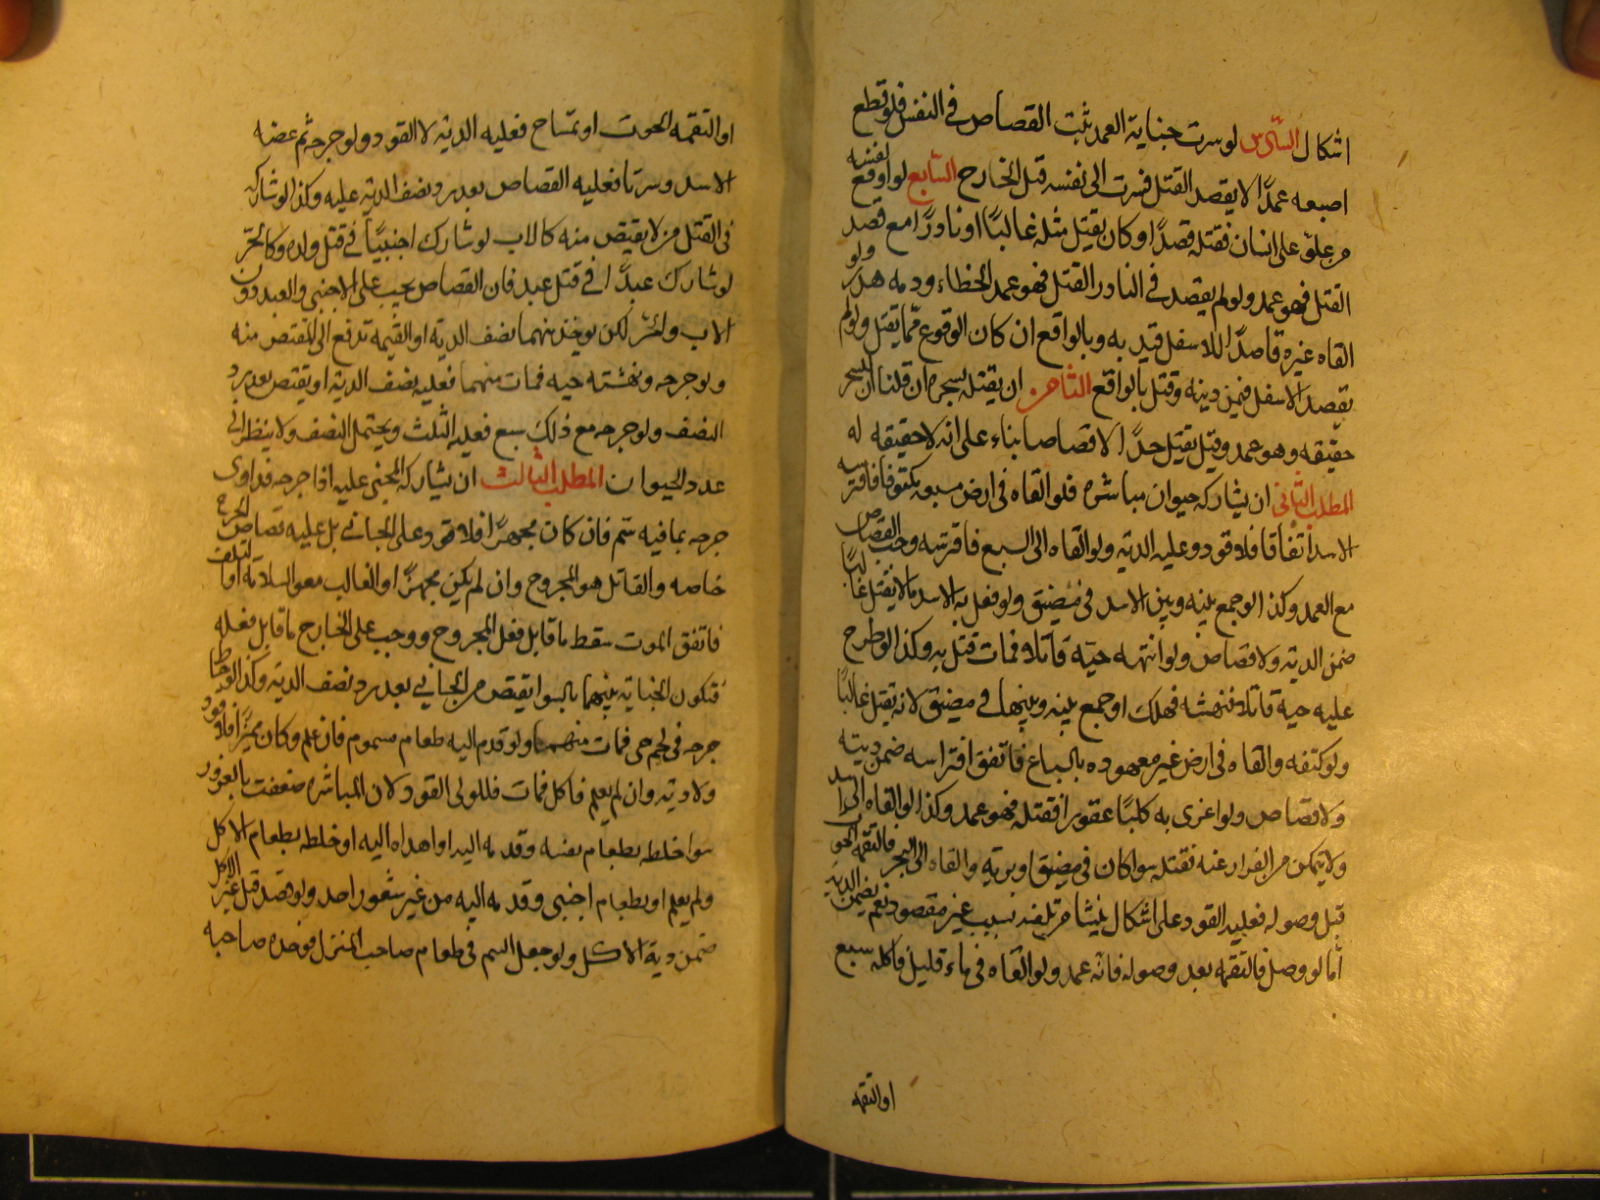 اشكال السادس لو سرت جناية العمد ثبت القصاص في النفس فلو قطع
اصبعه عمدًا لا يقصد القتل فسرت الى نفسه قتل الجارح السابع لو اوقع نفسه
من علو على انسان فقتله قصدًا وكان يقتل مثله غالبًا او نادرًا مع قصد
القتل فهو عمد ولو لم يقصد في النادر القتل فهو عمد الخطاء ودمه هدر ولو
القاه غيره قاصدًا للاسفل قيد به وبالواقع ان كان الوقوع مما يقتل ولو لم
يقصد الاسفل ضمن ديته وقتل بالواقع الثامن ان يقتله بسحره ان قلنا ان للسحر
حقيقه وهو عمد وقيل يقتل حدًا لا قصاصا بناء على انه لا حقيقه له
المطلب الثاني ان يشاركه حيوان مباشره فلو القاه في ارض مسبعه مكتوفا فافترسه
الاسد اتفاقا فلا قود وعليه الديه ولو القاه الى السبع فافترسه وجب القصاص
مع العمد وكذا لو جمع بينه وبين الاسد في مضيق ولو فعل به الاسد ما لا يقتل غالبًا
ضمن الديه ولا قصاص ولو انهشه حيّه قاتلا فمات قتل به وكذا لو طرح
عليه حية قاتلا فنهشه فهلك او جمع بينه وبينها في مضيق لانه يقتل غالبًا
ولو كتفه والقاه في ارض غير معهوده بالسباع فاتفق افتراسه ضمن ديته
ولا قصاص ولو اغرى به كلبًا عقورا فقتله فهو عمد وكذا لو القاه الى اسد
ولا يتمكن من الفرار عنه فقتله سوا كان في مضيق او بريه والقاه الى البحر فالتقمه الحوت
قبل وصوله فعليه القود على اشكال ينشا من تلفه بسبب غير مقصود نعم يضمن الديه
أما لو وصل فالتقمه بعد وصوله فانه عمد ولو القاه في ماء قليل فاكله سبع
او التقمه
او التقمه الحوت او تمساح فعليه الديه لا القود ولو جرحه ثم عضه
الاسد وسرتا فعليه القصاص بعد رد نصف الديه عليه وكذا لو شاركه
في القتل من لا يقتص منه كالاب لو شارك اجنبيًا في قتل ولده وكالحرّ
لو شارك عبدًا في قتل عبد فان القصاص يجب على الاجنبي والعبد دون
الاب والحر لكن يوخذ منهما نصف الديه او القيمه تدفع الى المقتص منه
ولو جرحه ونهشته حيه فمات منهما فعليه نصف الديه او يقتص بعد رد
النصف ولو جرحه مع ذلك سبع فعليه الثلث ويحتمل النصف ولا ينظر الى
عدد الحيوان المطلب الثالث ان يشاركه المجني عليه اذا جرحه فداوى
جرحه بما فيه سم فان كان مجهزًا فلا قود على الجاني بل عليه قصاص الجرح
خاصه والقاتل هو المجروح وان لم يكن مجهزًا والغالب معه السلامه او التلف
فاتفق الموت سقط ما قابل فعل المجروح ووجب على الجارح ما قابل فعله
فتكون الجنايه بينهما بالسوا يقتص من الجاني بعد رد نصف الديه وكذا لو خاط
جرحه في لحم حي فمات منهما ولو قدم اليه طعام مسموم فان علم وكان مميزًا فلا قود
ولا ديه وان لم يعلم فاكل فمات فللولي القود لان المباشره ضعفت بالغرور
سوا خلطه بطعام نفسه وقدمه اليه او اهداه اليه او خلطه بطعام الاكل
ولم يعلم او بطعام اجنبي وقدمه اليه من غير شعور احد ولو قصد قتل غير الاكل
ضمن دية الاكل ولو جعل السم في طعام صاحب المنزل فوجده صاحبه